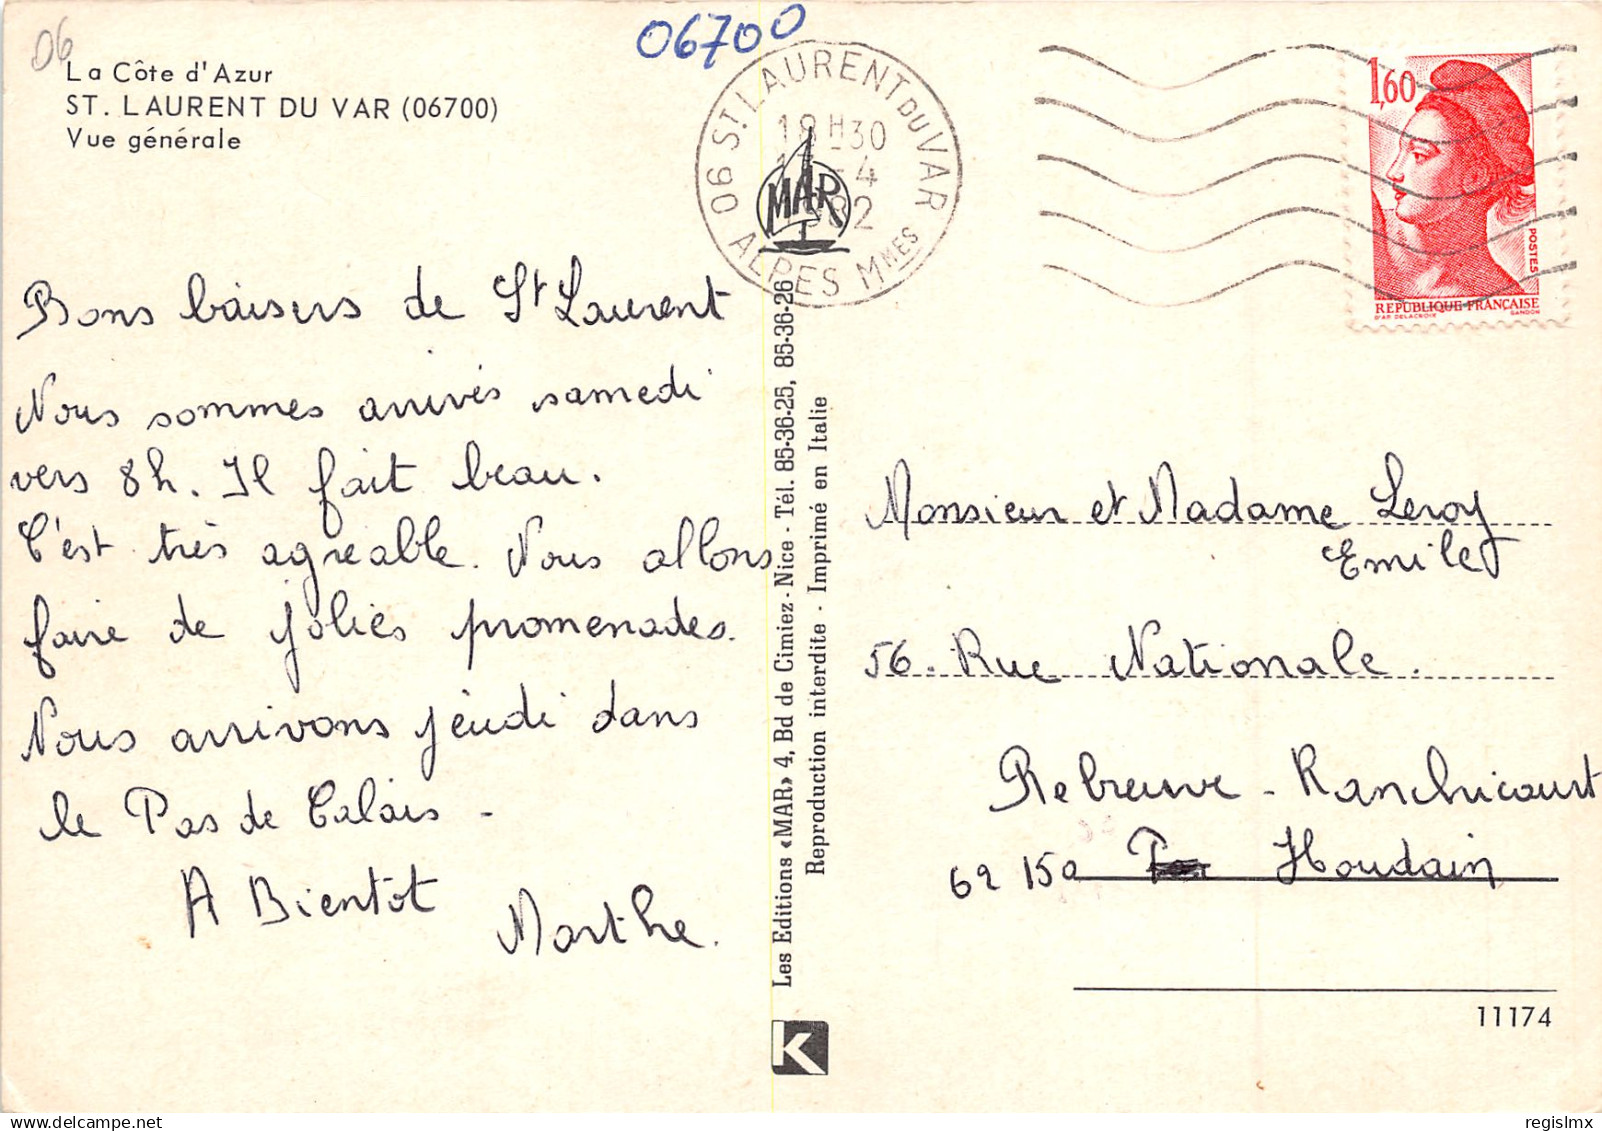 06
06700
La Côte d'Azur
ST. LAURENT DU VAR (06700)
Vue générale
06 ST. LAURENT DU VAR
18 H 30
-4
1982
ALPES Mmes
MAR
1,60
POSTES
REPUBLIQUE FRANÇAISE
D'AP. DELACROIX GANDON
Bons baisers de St Laurent
Nous sommes arrivés samedi
vers 8h. Il fait beau.
C'est très agreable. Nous allons
faire de jolies promenades.
Nous arrivons jeudi dans
le Pas de Calais -
A Bientôt
Marthe.
Les Editions «MAR» 4, Bd de Cimiez - Nice - Tél. 85-36-25, 85-36-26
Reproduction interdite - Imprimé en Italie
K
Monsieur et Madame Leroy
Emile
56. Rue Nationale.
Rebreuve - Ranchicourt
62 150 Houdain
11174
regislmx